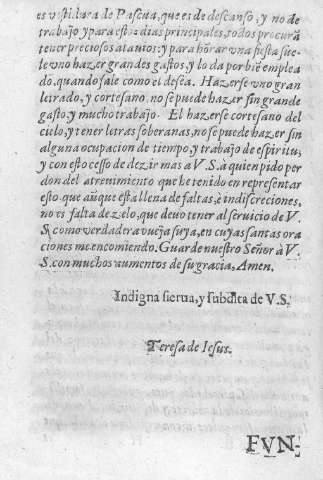 es vestidura de Pascua, que es de descanso, y no de
trabajo y para estos dias principales, todos procurã
tener preciosos atauios: y para hõrar vna fiesta sue-
le vno hazer grandes gastos, y lo da por biẽ emplea
do, quando sale como el desea. Hazerse vno gran
letrado, y cortesano, no se puede hazer sin grande
gasto, y mucho trabajo. El hazerse cortesano del
cielo, y tener letras soberanas, no se puede hazer sin
alguna ocupacion de tiempo, y trabajo de espiritu,
y con esto cesso de dezir mas a V.S. à quien pido per
don del atreuimiento que he tenido en representar
esto, que aũque està llena de faltas, è indiscreciones,
no es falta de zelo, que deuo tener al seruicio de V.
S. como verdadera oueja suya, en cuyas santas ora
ciones me encomiendo. Guarde nuestro Señor à V.
S. con muchos aumentos de su gracia, Amen.
Indigna sierua, y subdita de V.S.
Teresa de Iesus.
FVN-